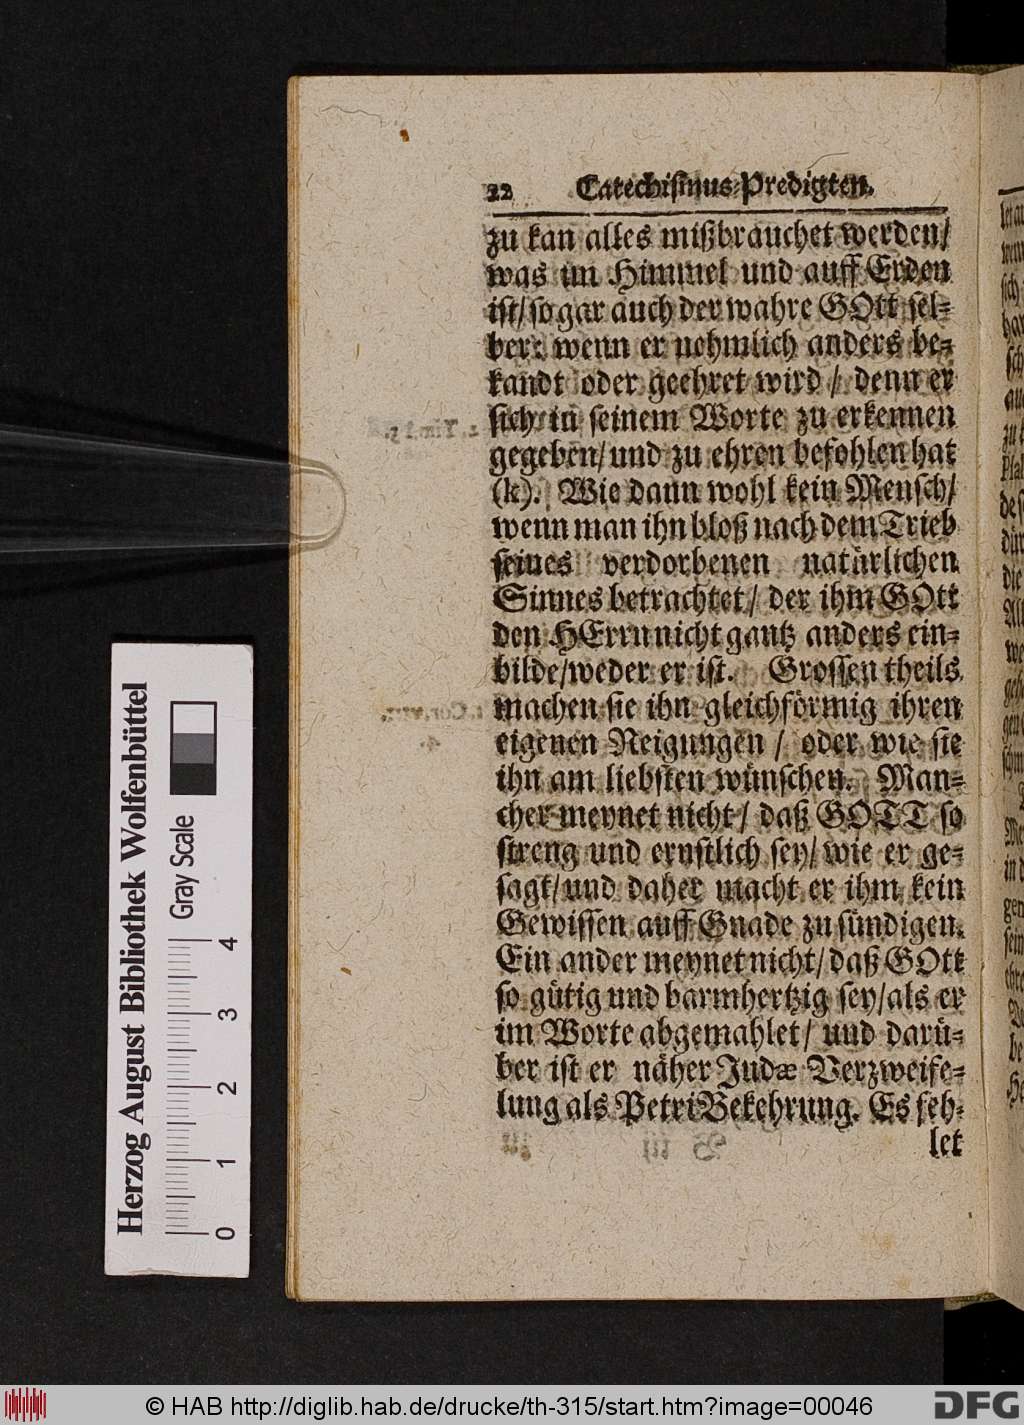 22 Catechismus-Predigten.
zu kan alles mißbrauchet werden/
was im Himmel und auff Erden
ist/ so gar auch der wahre GOtt sel-
ber: wenn er nehmlich anders be-
kandt oder geehret wird / denn er
sich in seinem Worte zu erkennen
gegeben/ und zu ehren befohlen hat
(k). Wie dann wohl kein Mensch/
wenn man ihn bloß nach dem Trieb
seines verdorbenen natürlichen
Sinnes betrachtet / der ihm GOtt
den HErrn nicht gantz anders ein-
bilde/weder er ist. Grossen theils
machen sie ihn gleichförmig ihren
eigenen Neigungen / oder wie sie
ihn am liebsten wünschen. Man-
cher meynet nicht / daß GOTT so
streng und ernstlich sey/ wie er ge-
sagt/ und daher macht er ihm kein
Gewissen auff Gnade zu sündigen.
Ein ander meynet nicht/ daß GOtt
so gütig und barmhertzig sey/als er
im Worte abgemahlet/ und darü-
ber ist er näher Judæ Verzweife-
lung als Petri Bekehrung. Es feh-
let
Herzog August Bibliothek Wolfenbüttel
Gray Scale
0 1 2 3 4
© HAB http://diglib.hab.de/drucke/th-315/start.htm?image=00046
DFG